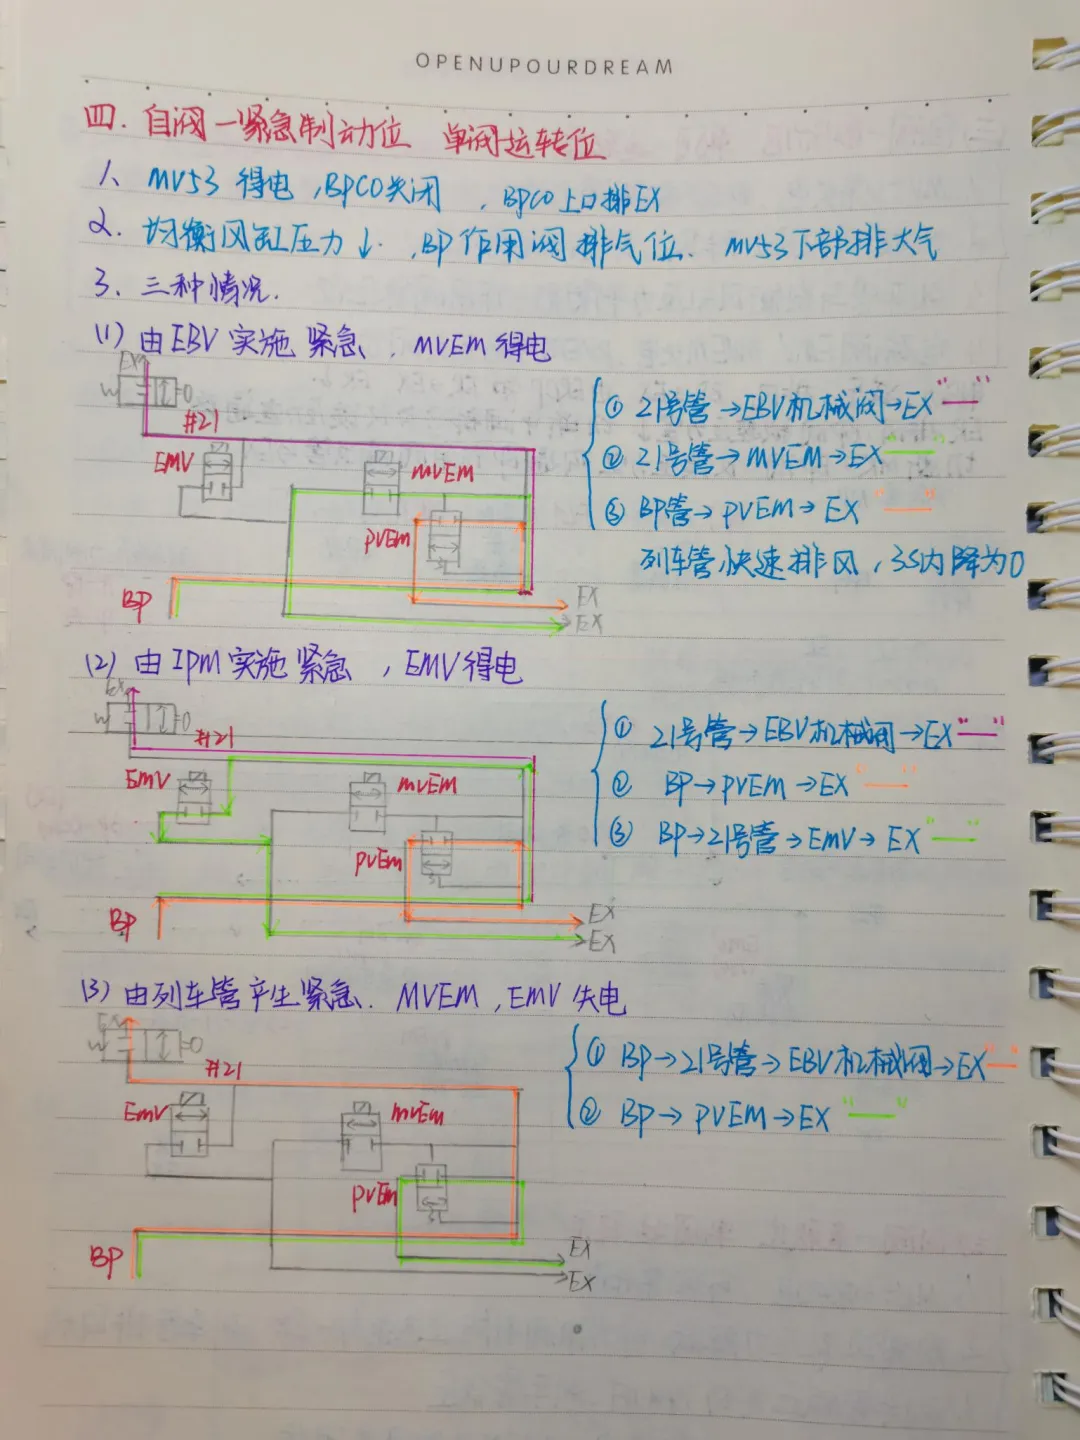 OPENUPOURDREAM
四. 自阀—紧急制动位 单阀运转位
1、MV53 得电,BPCO关闭 ,BPCO上口排EX
2. 均衡风缸压力↓. ,BP作用阀排气位. MV53下部排大气
3、三种情况.
(1) 由EBV 实施 紧急 ,MVEM得电
EX
① 21号管→EBV机械阀→EX"—"
#21
② 21号管→MVEM→EX"—"
EMV
mvEm
③ BP管→PVEM→EX "—"
PVEm
列车管快速排风,3S内降为0
BP
EX
EX
(2) 由IPM实施 紧急 ,EMV得电
EX
① 21号管→EBV机械阀→EX"—"
#21
② BP→PVEM→EX "—"
EmV
mvEm
③ BP→21号管→EMV→EX"—"
PVEm
BP
EX
EX
(3) 由列车管产生紧急. MVEM,EMV失电
EX
① BP→21号管→EBV机械阀→EX"—"
#21
② BP→PVEM→EX "—"
EmV
mvEm
PVEm
BP
EX
EX